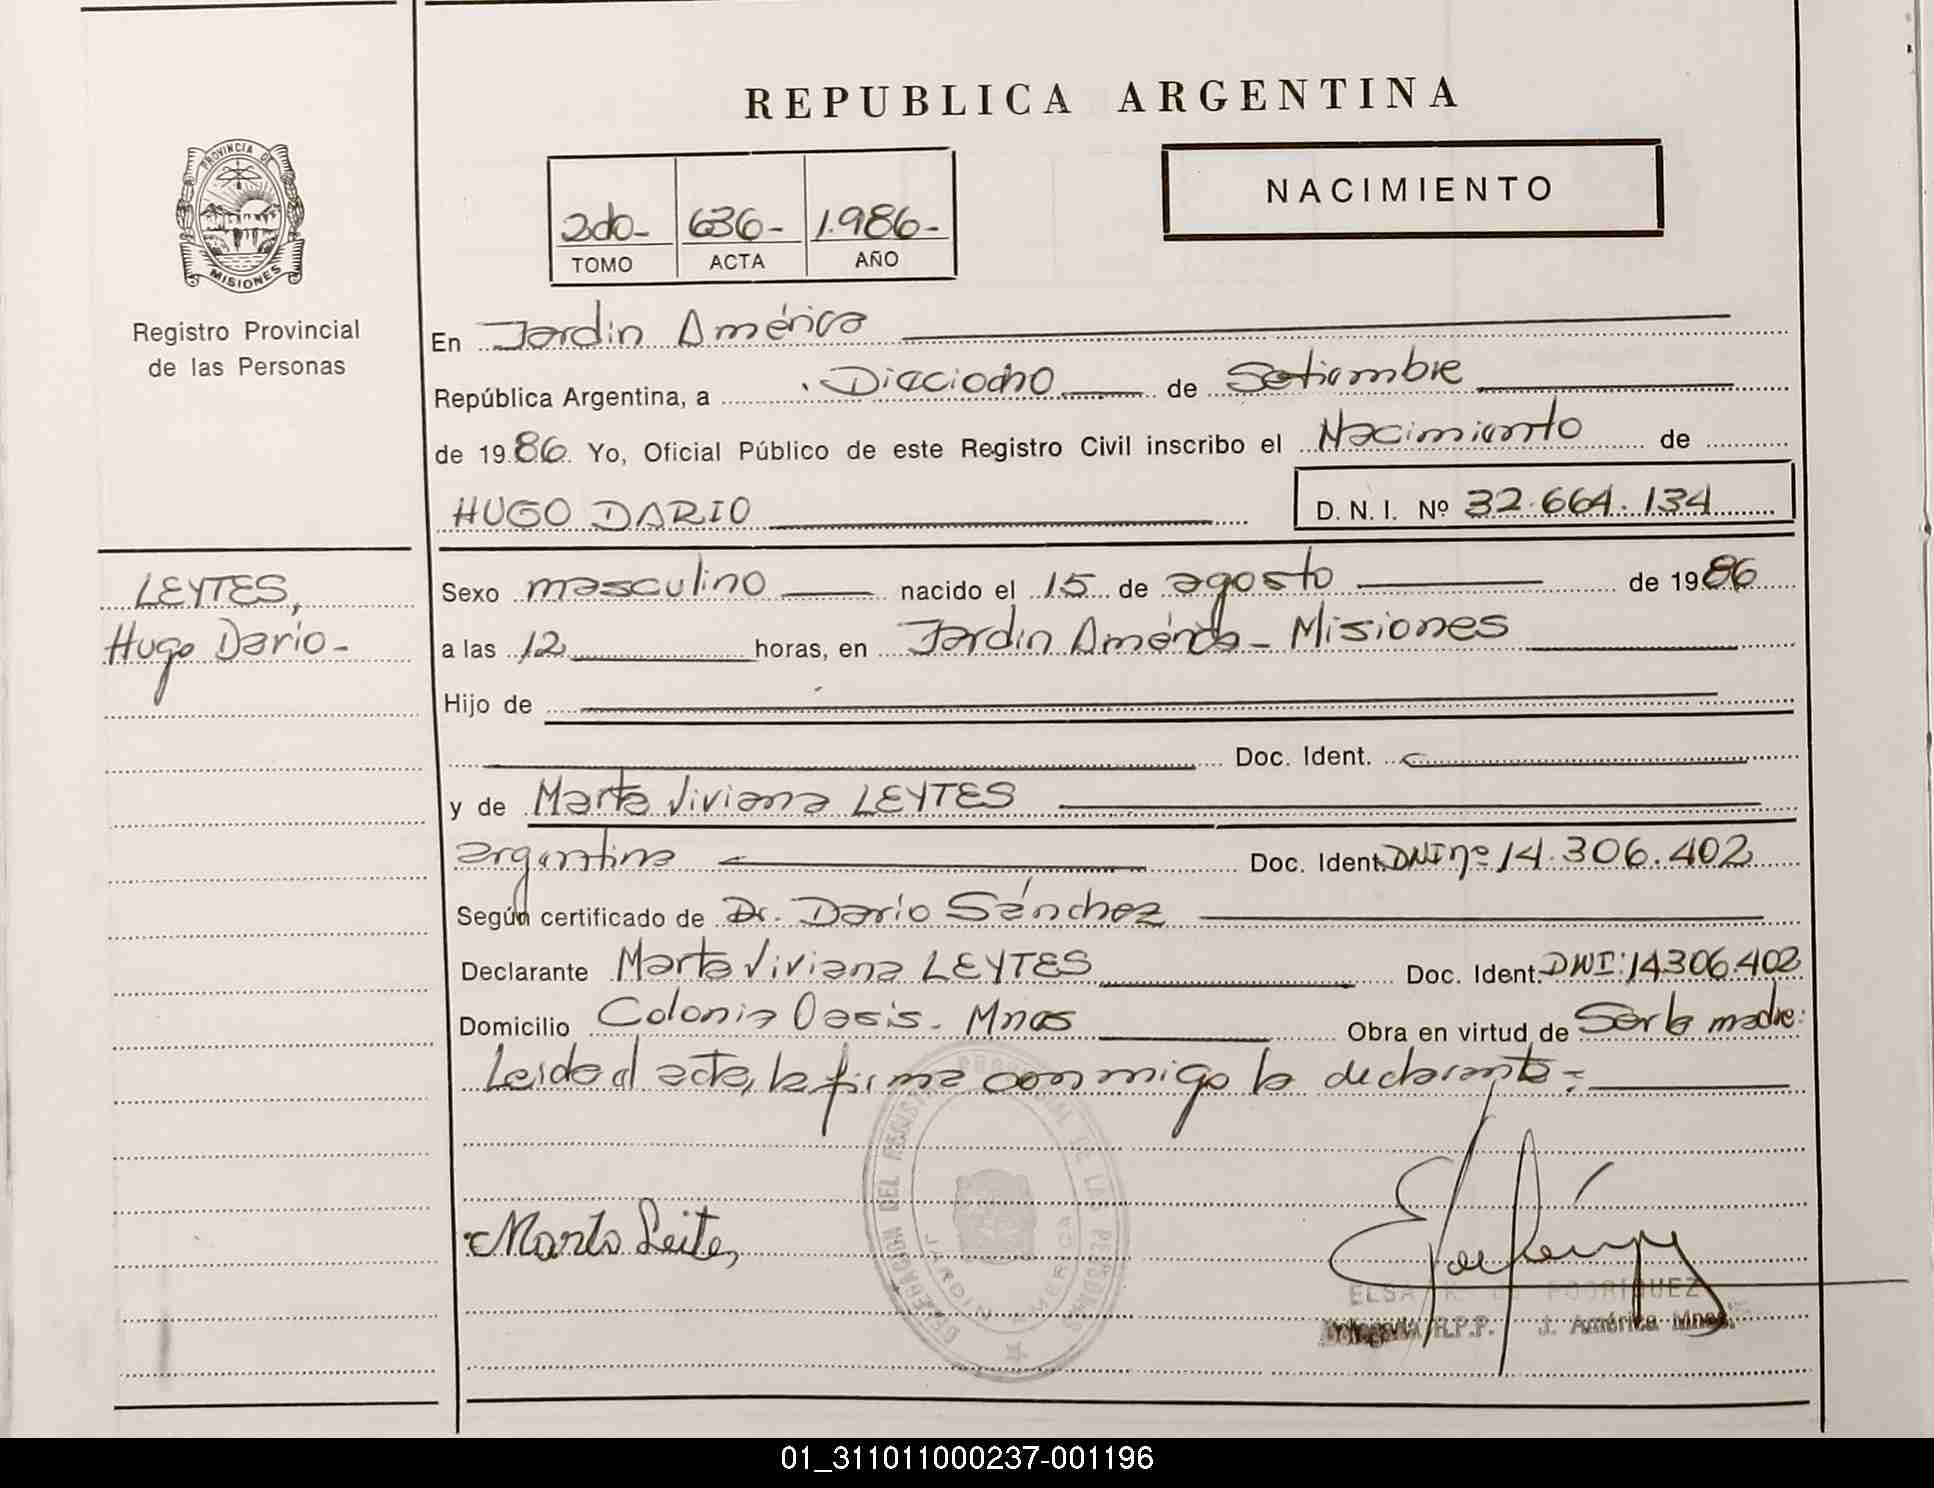 REPUBLICA ARGENTINA
PROVINCIA DE
MISIONES
Registro Provincial
de las Personas
NACIMIENTO
2do- 636- 1.986-
TOMO ACTA AÑO
En Jardin América
República Argentina, a Dieciocho de Setiembre
de 1986. Yo, Oficial Público de este Registro Civil inscribo el Nacimiento de
HUGO DARIO D. N. I. Nº 32.664.134
LEYTES,
Hugo Dario-
Sexo masculino nacido el 15 de agosto de 1986
a las 12 horas, en Jardin América - Misiones
Hijo de
Doc. Ident.
y de Marta Viviana LEYTES
argentina Doc. Ident. DNI nº 14.306.402
Según certificado de Dr. Dario Sánchez
Declarante Marta Viviana LEYTES Doc. Ident. DNI: 14.306.402
Domicilio Colonia Oasis. Mnes Obra en virtud de Ser la madre:
Leida el acta, la firma conmigo la declarante=
DEL REGISTRO PROVINCIAL DE LAS PERSONAS
JARDIN AMERICA
Marta Leite,
ELSA K. de RODRIGUEZ
R.P.P. J. América Mnes.
01_311011000237-001196